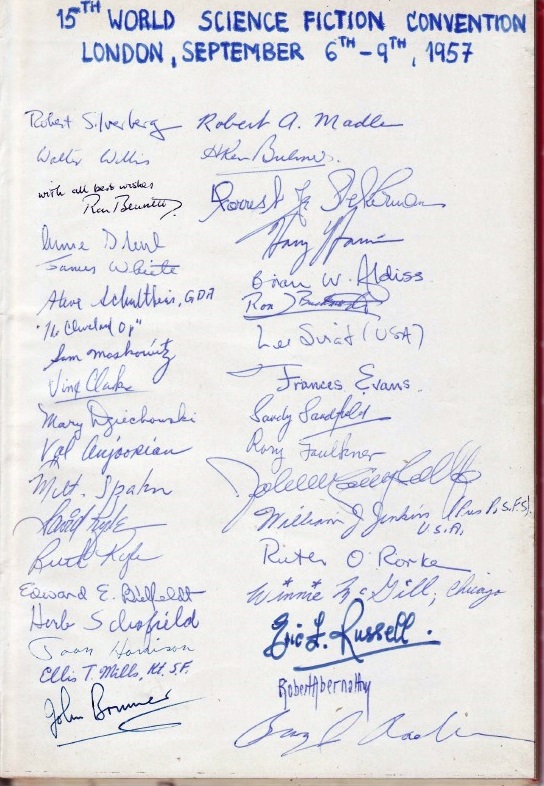 15TH WORLD SCIENCE FICTION CONVENTION
LONDON, SEPTEMBER 6TH - 9TH, 1957
Robert Silverberg
Walter Willis
with all best wishes
Ron Bennett
James White
Steve Schultheis, GDA
"The Cleveland Op"
Sam Moskowitz
Vinç Clarke
Mary Dziechowski
Val Anjoorian
Milt. Spahn
David Kyle
Ruth Kyle
Edward E. Bielfeldt
Herb Schofield
Joan Harrison
Ellis T. Mills, Kt. S.F.
John Brunner
Robert A. Madle
H Ken Bulmer.
Forrest J Ackerman
Harry Harrison
Brian W. Aldiss
Ron J
(USA)
Frances Evans.
Sandy Sandfield
Rory Faulkner
John W Campbell
William J Jenkins
U.S.A.
O'Rorke
Winnie McGill, Chicago
Eric F. Russell.
Robert Abernathy